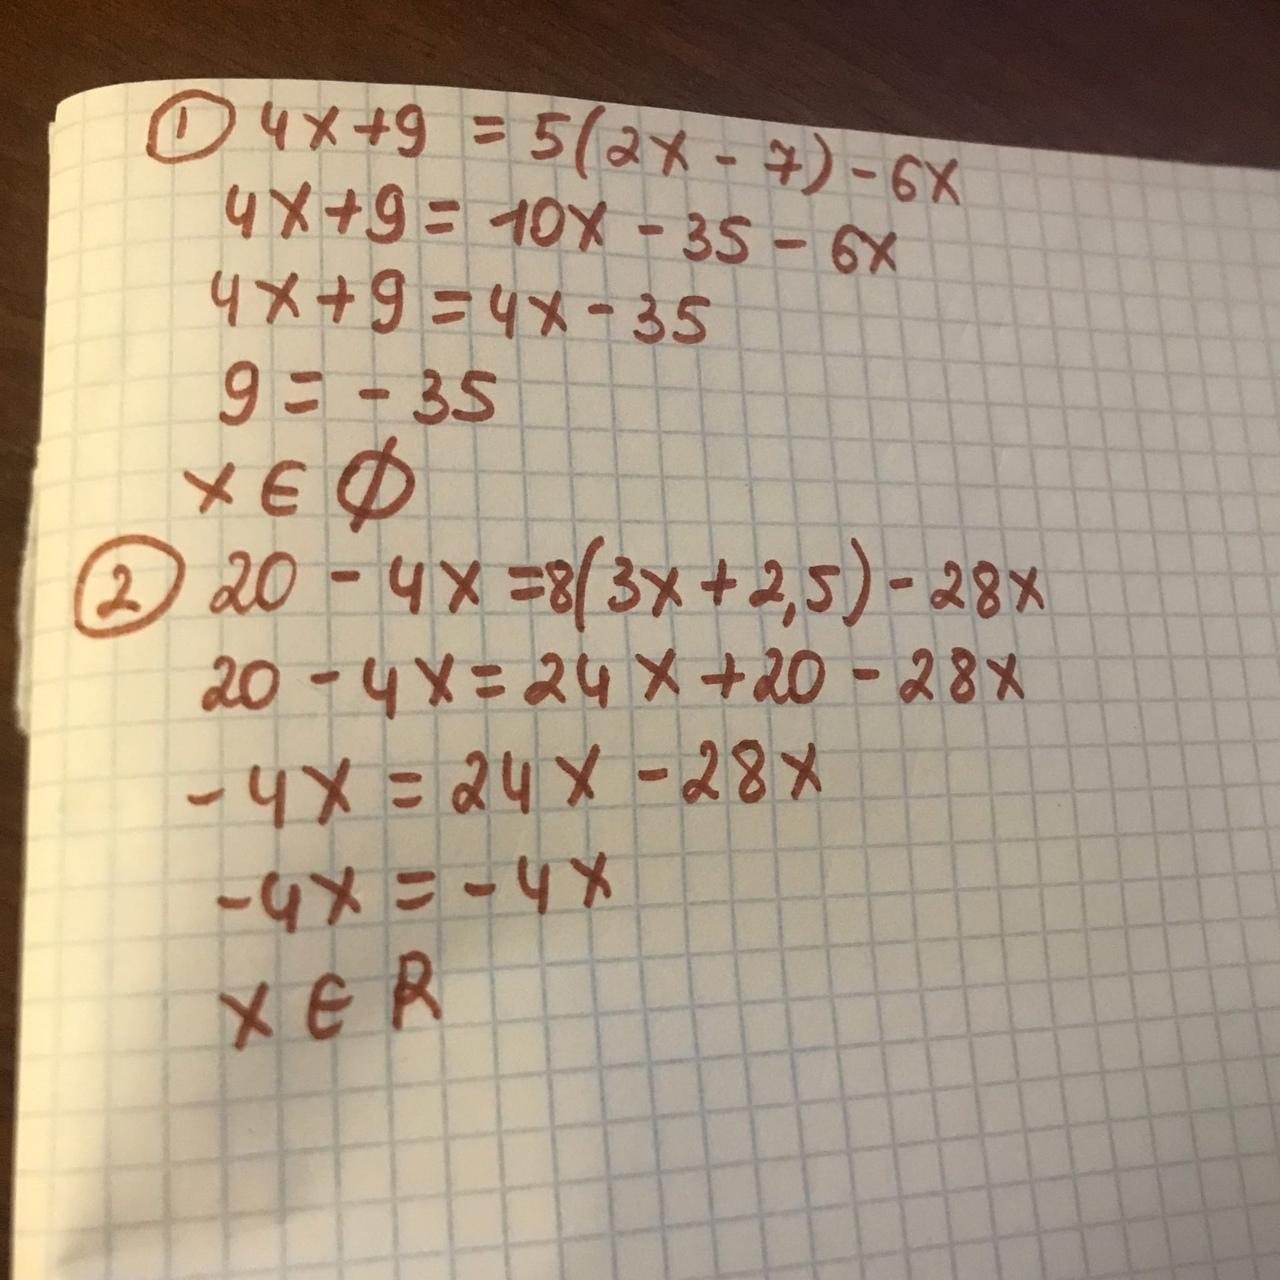 ① 4x+9 = 5(2x - 7) - 6x
4x+9 = 10x - 35 - 6x
4x+9 = 4x - 35
9 = - 35
x ∈ ∅
② 20 - 4x = 8(3x + 2,5) - 28x
20 - 4x = 24x + 20 - 28x
- 4x = 24x - 28x
- 4x = - 4x
x ∈ R